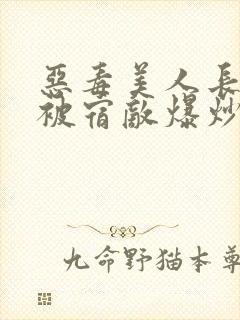 惡毒美人長
被宿敵爆炒
九命野猫本尊